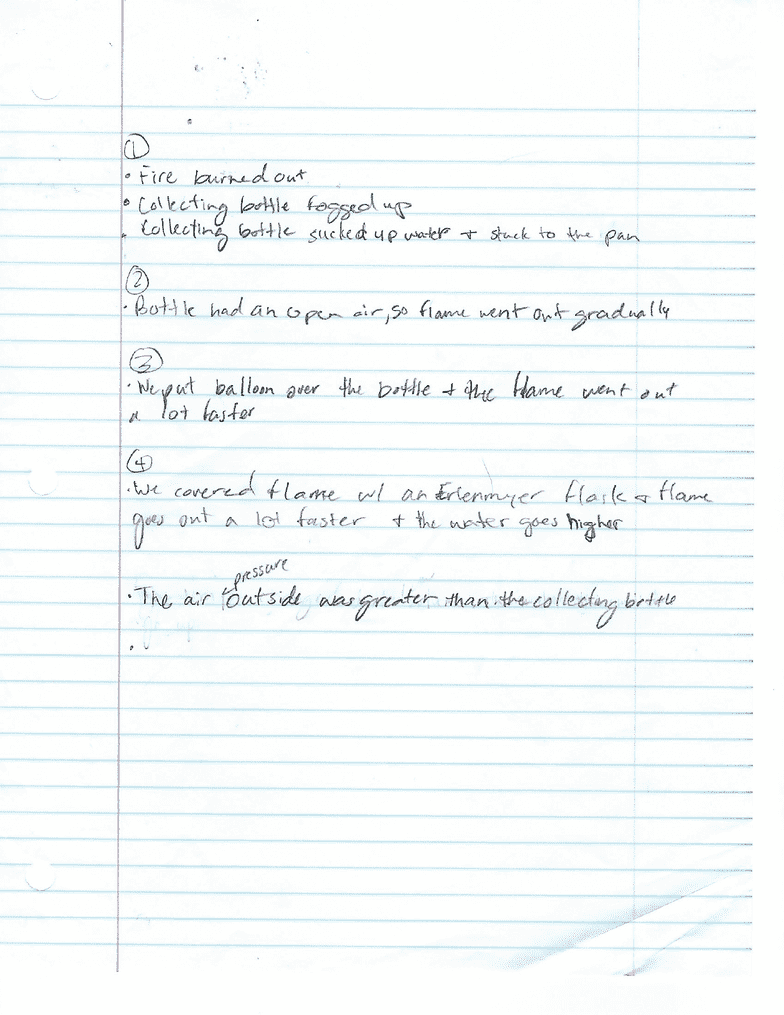 ①
• Fire burned out
• Collecting bottle fogged up
• Collecting bottle sucked up water + stuck to the pan
②
• Bottle had an open air, so flame went out gradually
③
• We put balloon over the bottle + the flame went out
a lot faster
④
• We covered flame w/ an Erlenmyer flask & flame
goes out a lot faster + the water goes higher
pressure
• The air outside was greater than the collecting bottle
•